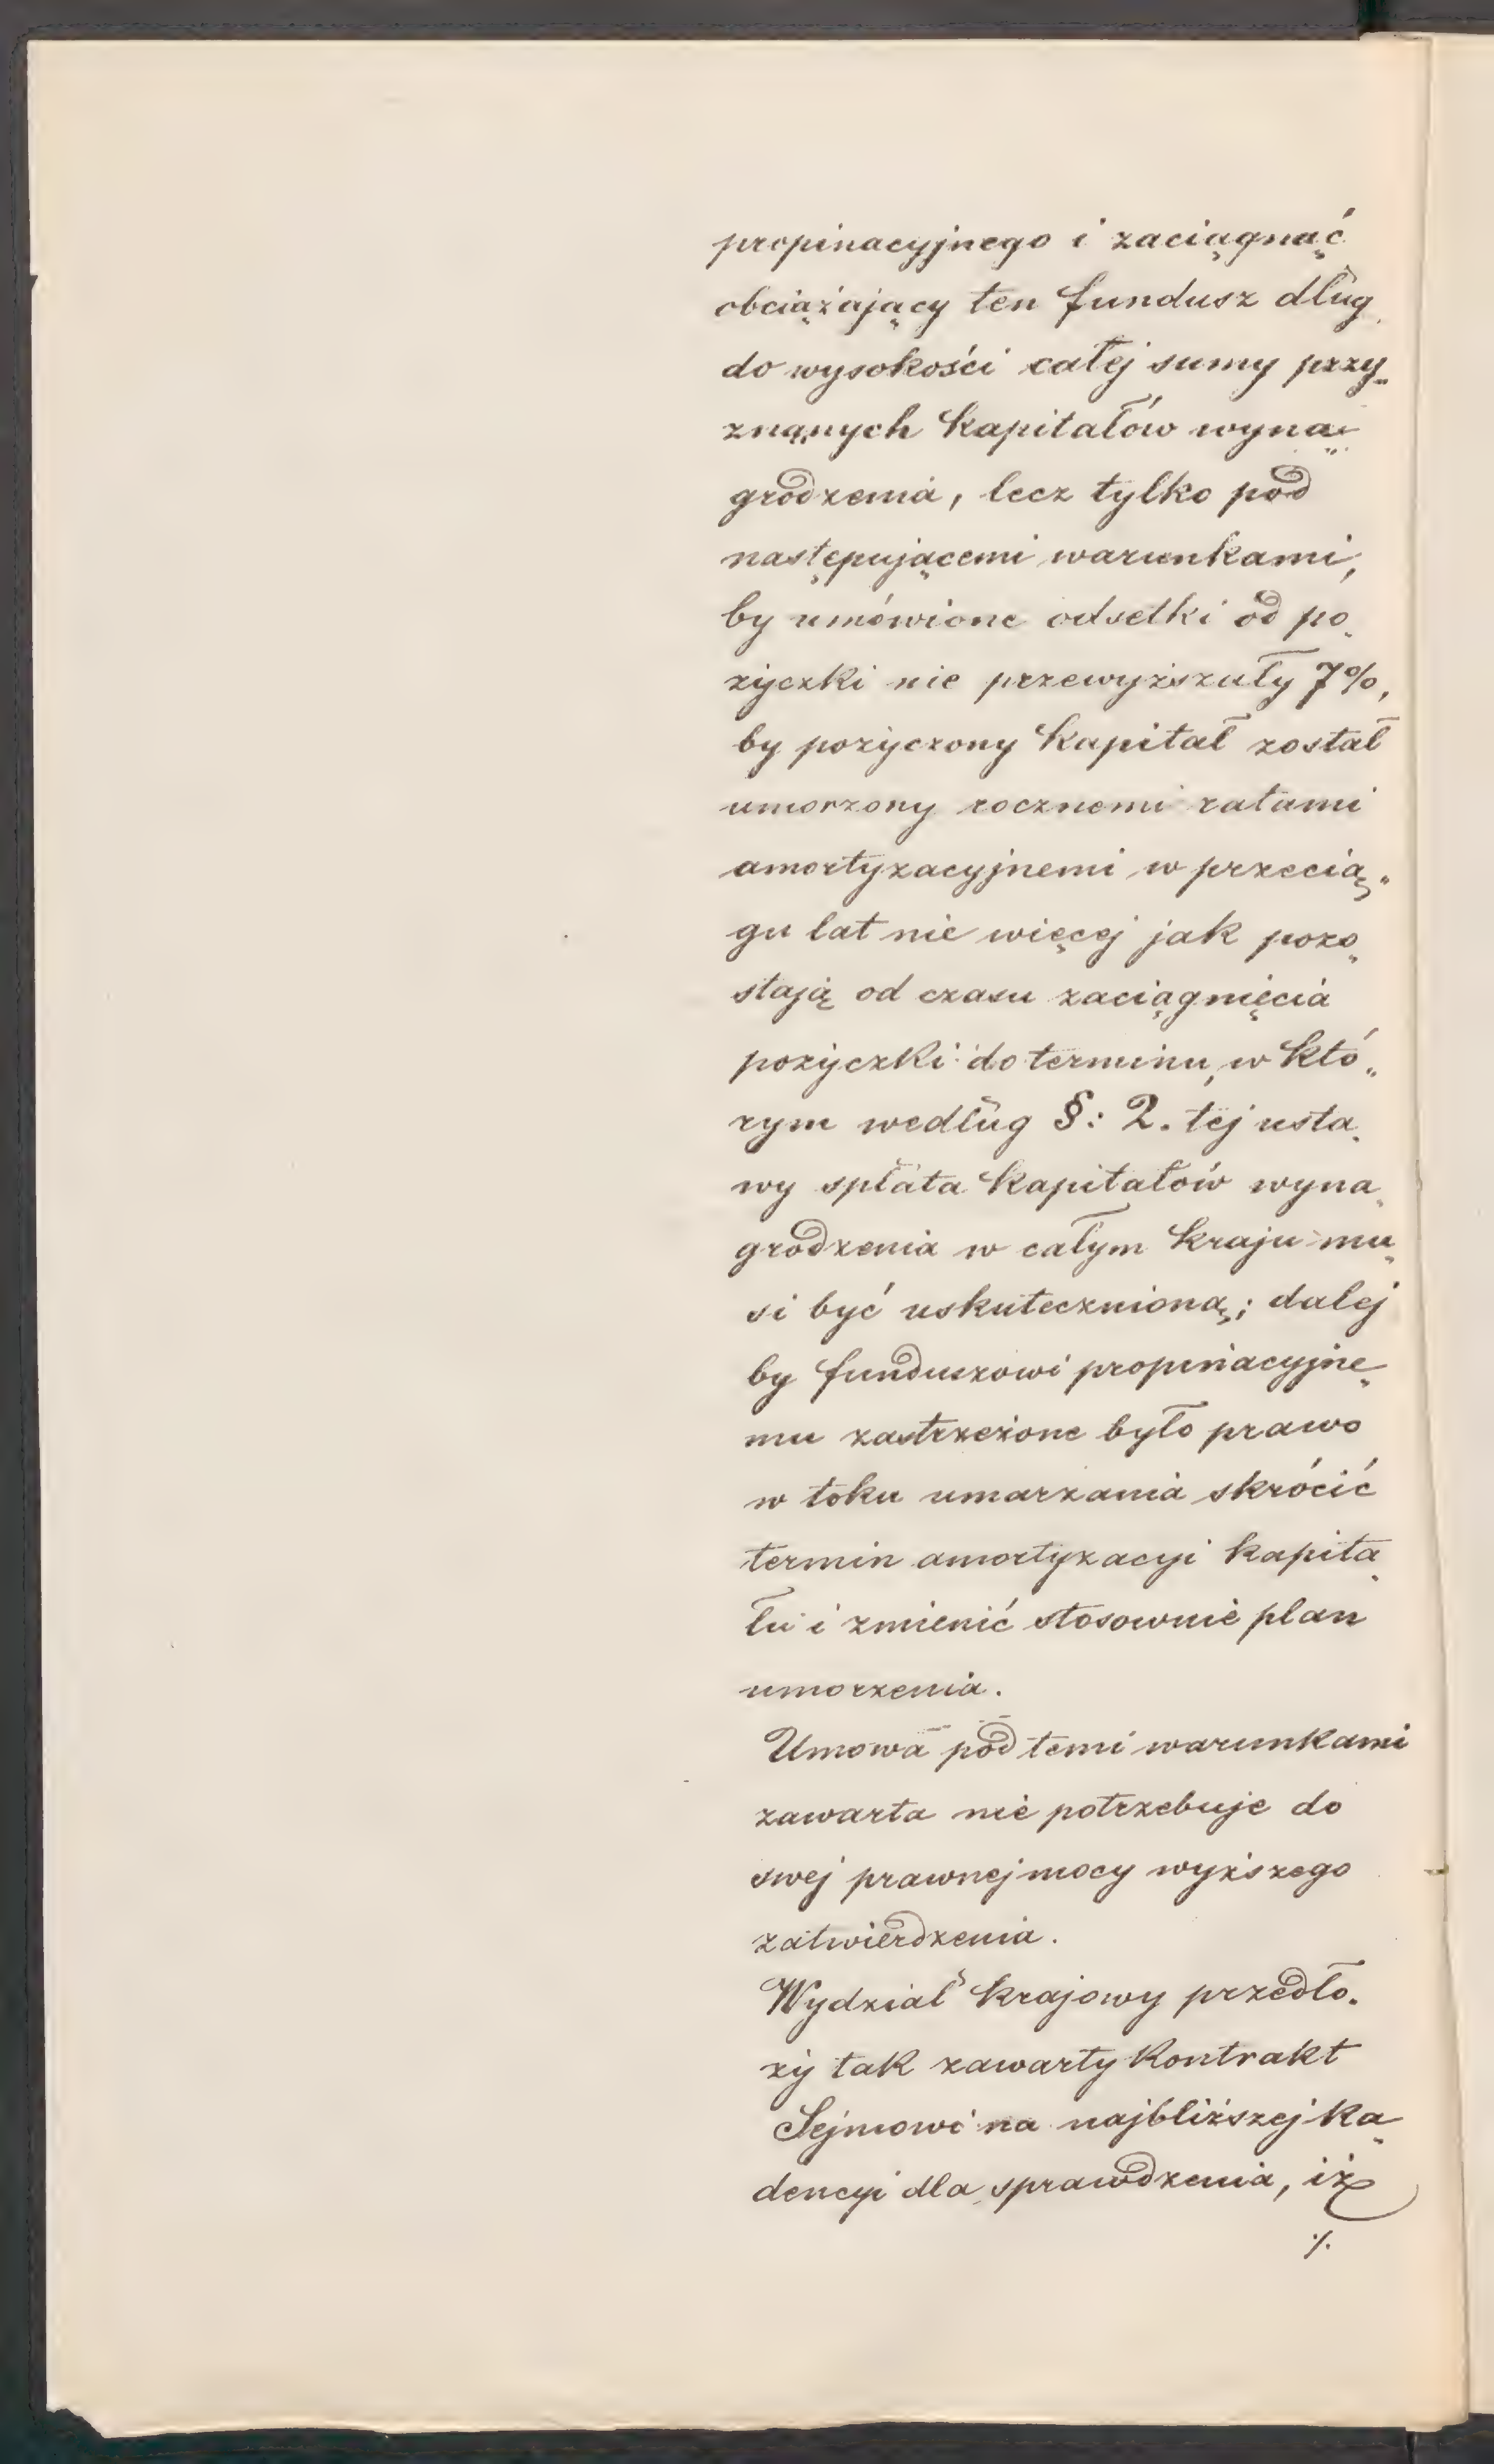 propinacyjnego i zaciągnąć
obciążający ten fundusz dług
do wysokości całej sumy przy„
znanych kapitałów wyna„
grodzenia, lecz tylko pod
następującemi warunkami,
by umówione odsetki od po„
życzki nie przewyższały 7%,
by pożyczony kapitał został
umorzony rocznemi ratami
amortyzacyjnemi w przecią„
gu lat nie więcej jak pozo„
stają od czasu zaciągnięcia
pożyczki do terminu, w któ„
rym według §: 2. tej usta„
wy spłata kapitałów wyna„
grodzenia w całym kraju mu„
si być uskutecznioną; dalej
by funduszowi propinacyjne„
mu zastrzeżone było prawo
w toku umarzania skrócić
termin amortyzacyi kapita„
łu i zmienić stosownie plan
umorzenia.
Umowa pod temi warunkami
zawarta nie potrzebuje do
swej prawnej mocy wyższego
zatwierdzenia.
Wydział krajowy przedło„
ży tak zawarty kontrakt
Sejmowi na najbliższej ka„
dencyi dla sprawdzenia, iż
./.